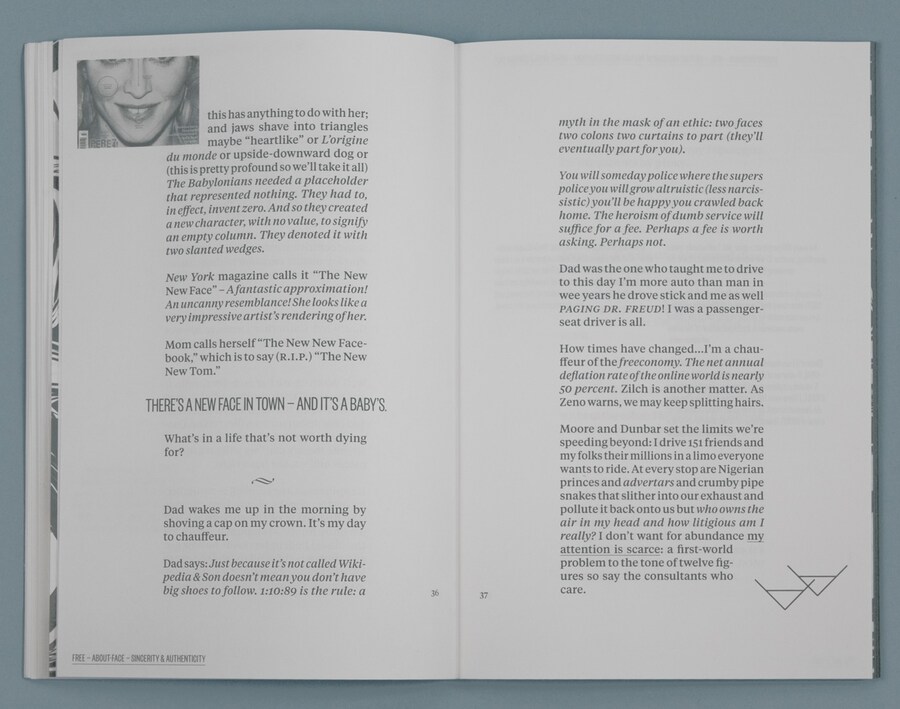 this has anything to do with her;
and jaws shave into triangles
maybe “heartlike” or L’origine
du monde or upside-downward dog or
(this is pretty profound so we’ll take it all)
The Babylonians needed a placeholder
that represented nothing. They had to,
in effect, invent zero. And so they created
a new character, with no value, to signify
an empty column. They denoted it with
two slanted wedges.
New York magazine calls it “The New
New Face” – A fantastic approximation!
An uncanny resemblance! She looks like a
very impressive artist’s rendering of her.
Mom calls herself “The New New Face-
book,” which is to say (R.I.P.) “The New
New Tom.”
THERE’S A NEW FACE IN TOWN – AND IT’S A BABY’S.
What’s in a life that’s not worth dying
for?
Dad wakes me up in the morning by
shoving a cap on my crown. It’s my day
to chauffeur.
Dad says: Just because it’s not called Wiki-
pedia & Son doesn’t mean you don’t have
big shoes to follow. 1:10:89 is the rule: a
36
FREE – ABOUT-FACE – SINCERITY & AUTHENTICITY
myth in the mask of an ethic: two faces
two colons two curtains to part (they’ll
eventually part for you).
You will someday police where the supers
police you will grow altruistic (less narcis-
sistic) you’ll be happy you crawled back
home. The heroism of dumb service will
suffice for a fee. Perhaps a fee is worth
asking. Perhaps not.
Dad was the one who taught me to drive
to this day I’m more auto than man in
wee years he drove stick and me as well
PAGING DR. FREUD! I was a passenger-
seat driver is all.
How times have changed...I’m a chau-
ffeur of the freeconomy. The net annual
deflation rate of the online world is nearly
50 percent. Zilch is another matter. As
Zeno warns, we may keep splitting hairs.
Moore and Dunbar set the limits we’re
speeding beyond: I drive 151 friends and
my folks their millions in a limo everyone
wants to ride. At every stop are Nigerian
princes and advertars and crumby pipe
snakes that slither into our exhaust and
pollute it back onto us but who owns the
air in my head and how litigious am I
really? I don’t want for abundance my
attention is scarce: a first-world
problem to the tone of twelve fig-
ures so say the consultants who
care.
37